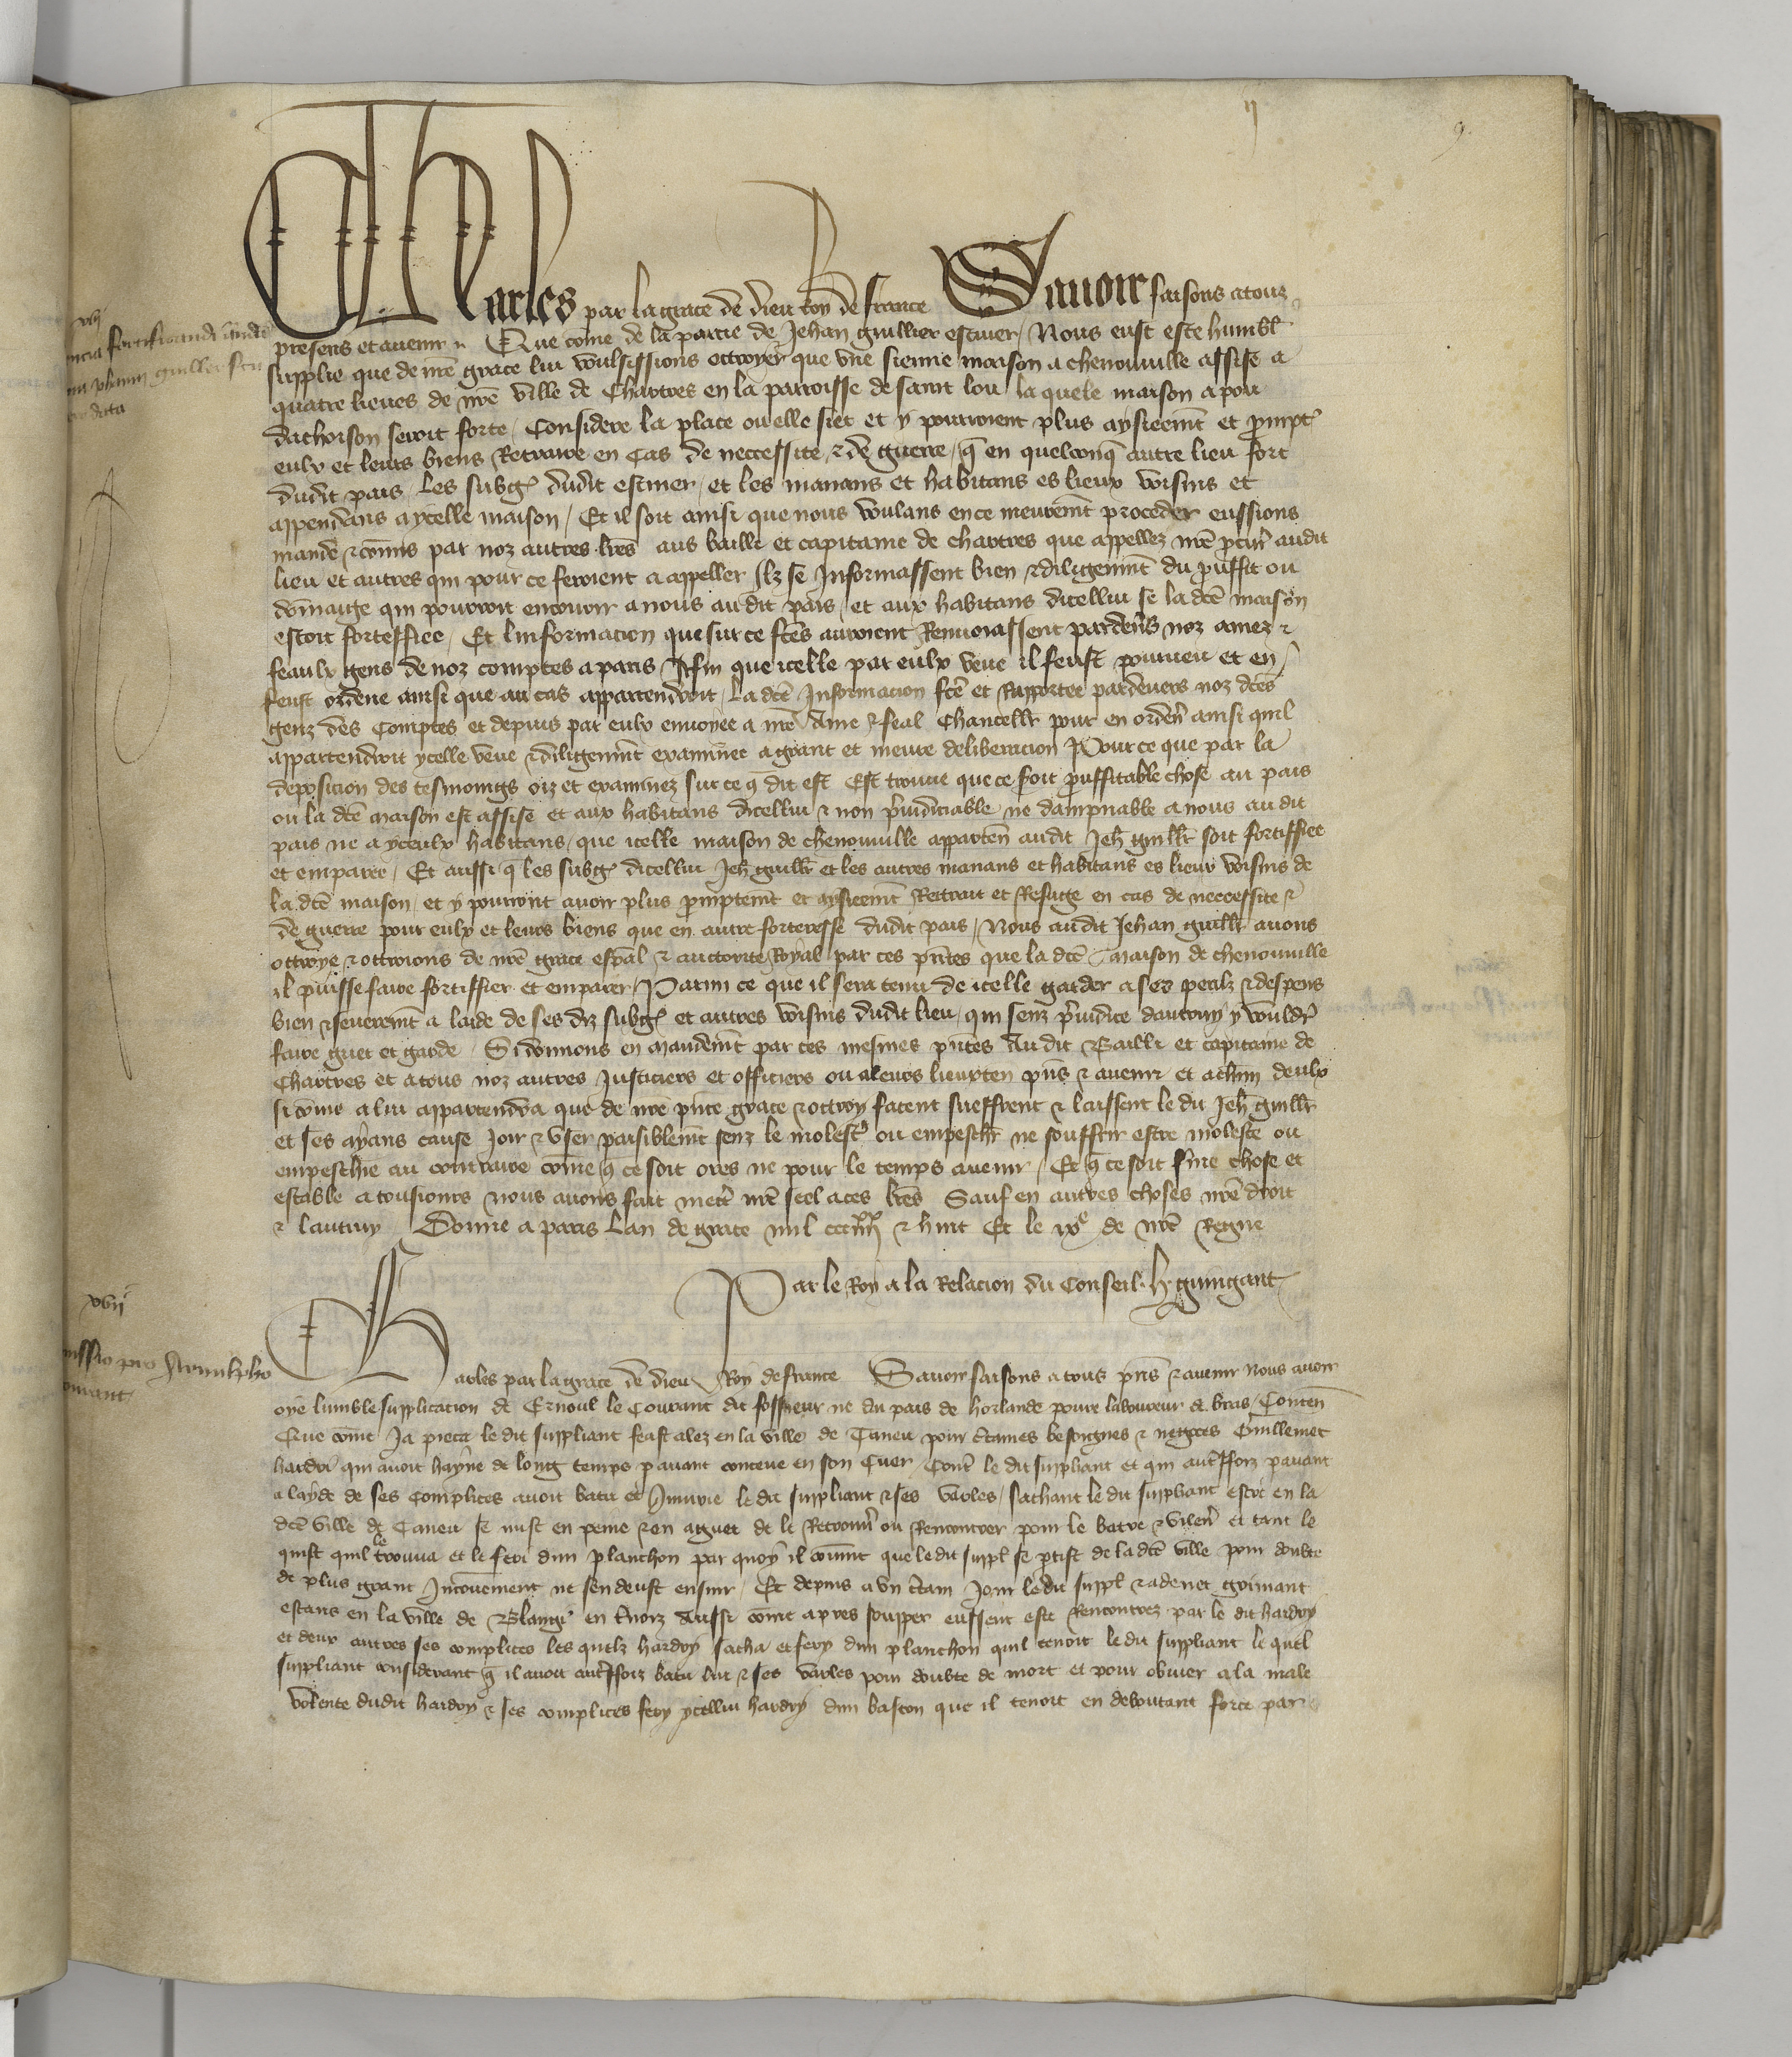 ij
9
Charles par la grace de dieu roy de france Sauoir faisons a touz
presens et auenir Que come de la partie de Jehan guillier escuier Nous eust este humbl
supplie que de nre grace lui voulsissions ottroyer que vne sienne maison a chenonuille assise a
quatre lieues de nre ville de Chartres en la parroisse de saint lou la quele maison a pou
dachoison seroit forte Considere la place ou elle siet et y pourroient plus aysieemt et prompt
eulx et leurs biens Retraire en Cas de neccessite & de guerre q en quelconq autre lieu fort
dudit pais Les subg dudit escuier et les manans et habitans es lieux voisins et
appendans a ycelle maison Et il soit ainsi que nous voulans en ce meuremt proceder eussions
mande & comis par noz autres lres aus bailli et capitaine de chartres que appellez nre pcur audit
lieu et autres qui pour ce feroient a appeller Ilz se Informassent bien & diligenmt du prouffit ou
domaige qui pourroit encourir a nous audit pais et aux habitans dicellui se la dce maison
estoit fortiffiee Et linformacion que sur ce fces auroient Renuoiassent pardeuers noz amez &
feaulx gens de noz comptes a paris Afin que icelle par eulx veue il feust pourueu et en
feust ordene ainsi que au cas appartendroit La dce Informacion fce et Rapportee pardeuers noz dces
genz des Comptes et depuis par eulx enuoyee a nre ame & feal Chancellr pour en orden ainsi quil
appartendroit ycelle veue & diligenmt examinee a grant et meure deliberacion Pour ce que par la
deposicion des tesmoings oiz et examinez sur ce q dit est Est trouue que ce soit prouffitable chose au pais
ou la dce maison est assise et aux habitans dicellui & non preiudiciable ne dampnable a nous au dit
pais ne a yceulx habitans que icelle maison de chenonuille apparten audit Jeh guillr soit fortiffiee
et emparee Et aussi q les subg dicellui Jeh guillr et les autres manans et habitans es lieux voisins de
la dce maison et y pourront auoir plus promptemt et aysieemt Retrait et Refuge en cas de neccessite &
de guerre pour eulx et leurs biens que en autre forteresse dudit pais Nous audit Jehan guillr auons
ottroye & ottroions de nre grace espal & auctorite Royal par ces pntes que la dce maison de chenonuille
il puisse faire fortiffier et emparer Parmi ce que il sera tenu de icelle garder a ses perilz & despens
bien & seuremt a laide de ses diz subg et autres voisins dudit lieu qui senz preiudice dautruy y vouldr
faire guet et garde Si donnons en mandemt par ces mesmes pntes au dit Bailli et capitaine de
Chartres et a tous noz autres Justiciers et officiers ou a leurs lieuxten pns & auenir et a chun deulx
si come a lui appartendra que de nre pnte grace & ottroy facent sueffrent & laissent le dit Jeh guillr
et ses ayans cause Joir & vser paisiblemt senz le molest ou empeschr ne souffrir estre moleste ou
empeschie au contraire come q ce soit ores ne pour le temps auenir Et q ce soit ferme chose et
estable a tousiours nous auons fait mettr nre seel a ces lres Sauf en autres choses nre droit
& lautruy Donne a paris Lan de grace mil ccc iiijxx & huit Et le ixe de nre Regne
Par le Roy a la Relacion du Conseil. H. guingant
xvij
Charles par la grace de dieu Roy de france Sauoir faisons a tous pns & auenir Nous auoir
oye lumble supplicacion de Ernoul le Courant dit fossieur ne du pais de hollande poure laboureur de bras Conten
Que come Ja pieca le dit suppliant feust alez en la ville de Caneu pour ctaines besoignes & negoces Guillemet
hardri qui auoit hayne de long temps pauant conceue en son Cuer Contr le dit suppliant et qui autreffoiz pauant
a layde de ses Complices auoit batu et Iniurie le dit suppliant & ses varles sachant le dit suppliant estre en la
dce ville de Caneu se mist en peine & en aguet de le Retrouuer ou Rencontrer pour le batre & vilen et tant le
quist quil le trouua et le feri dun planchon par quoy il couint que le dit suppl se ptist de la dce ville pour doubte
de plus grant Inconuenient ne sen deust ensuir Et depuis a vn ctain Jour le dit suppl & adenet guimant
estans en la ville de Blangi en tnoiz aussi come apres soupper eussent este Rencontrez par le dit hardry
et deux autres ses complices les quelz hardry sacha et fery dun planchon quil tenoit le dit suppliant le quel
suppliant considerant q il auoit autreffoiz batu lui & ses varles pour doubte de mort et pour obuier a la male
volente dudit hardry & ses complices fery ycellui hardry dun baston que il tenoit en deboutant force par